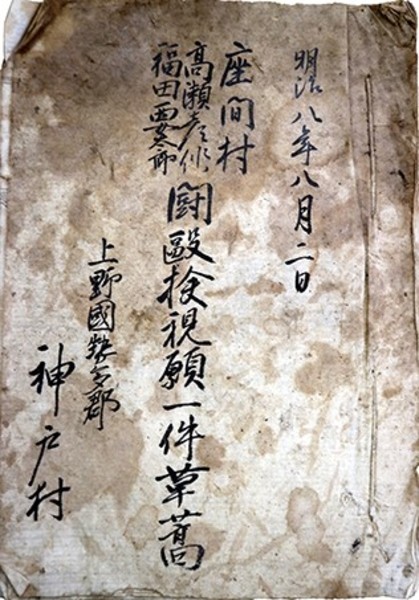 明治八年八月二日
座間村
高瀬彦
福田要太郎
闘毆検視願一件草藁
上野國勢多郡
神戸村